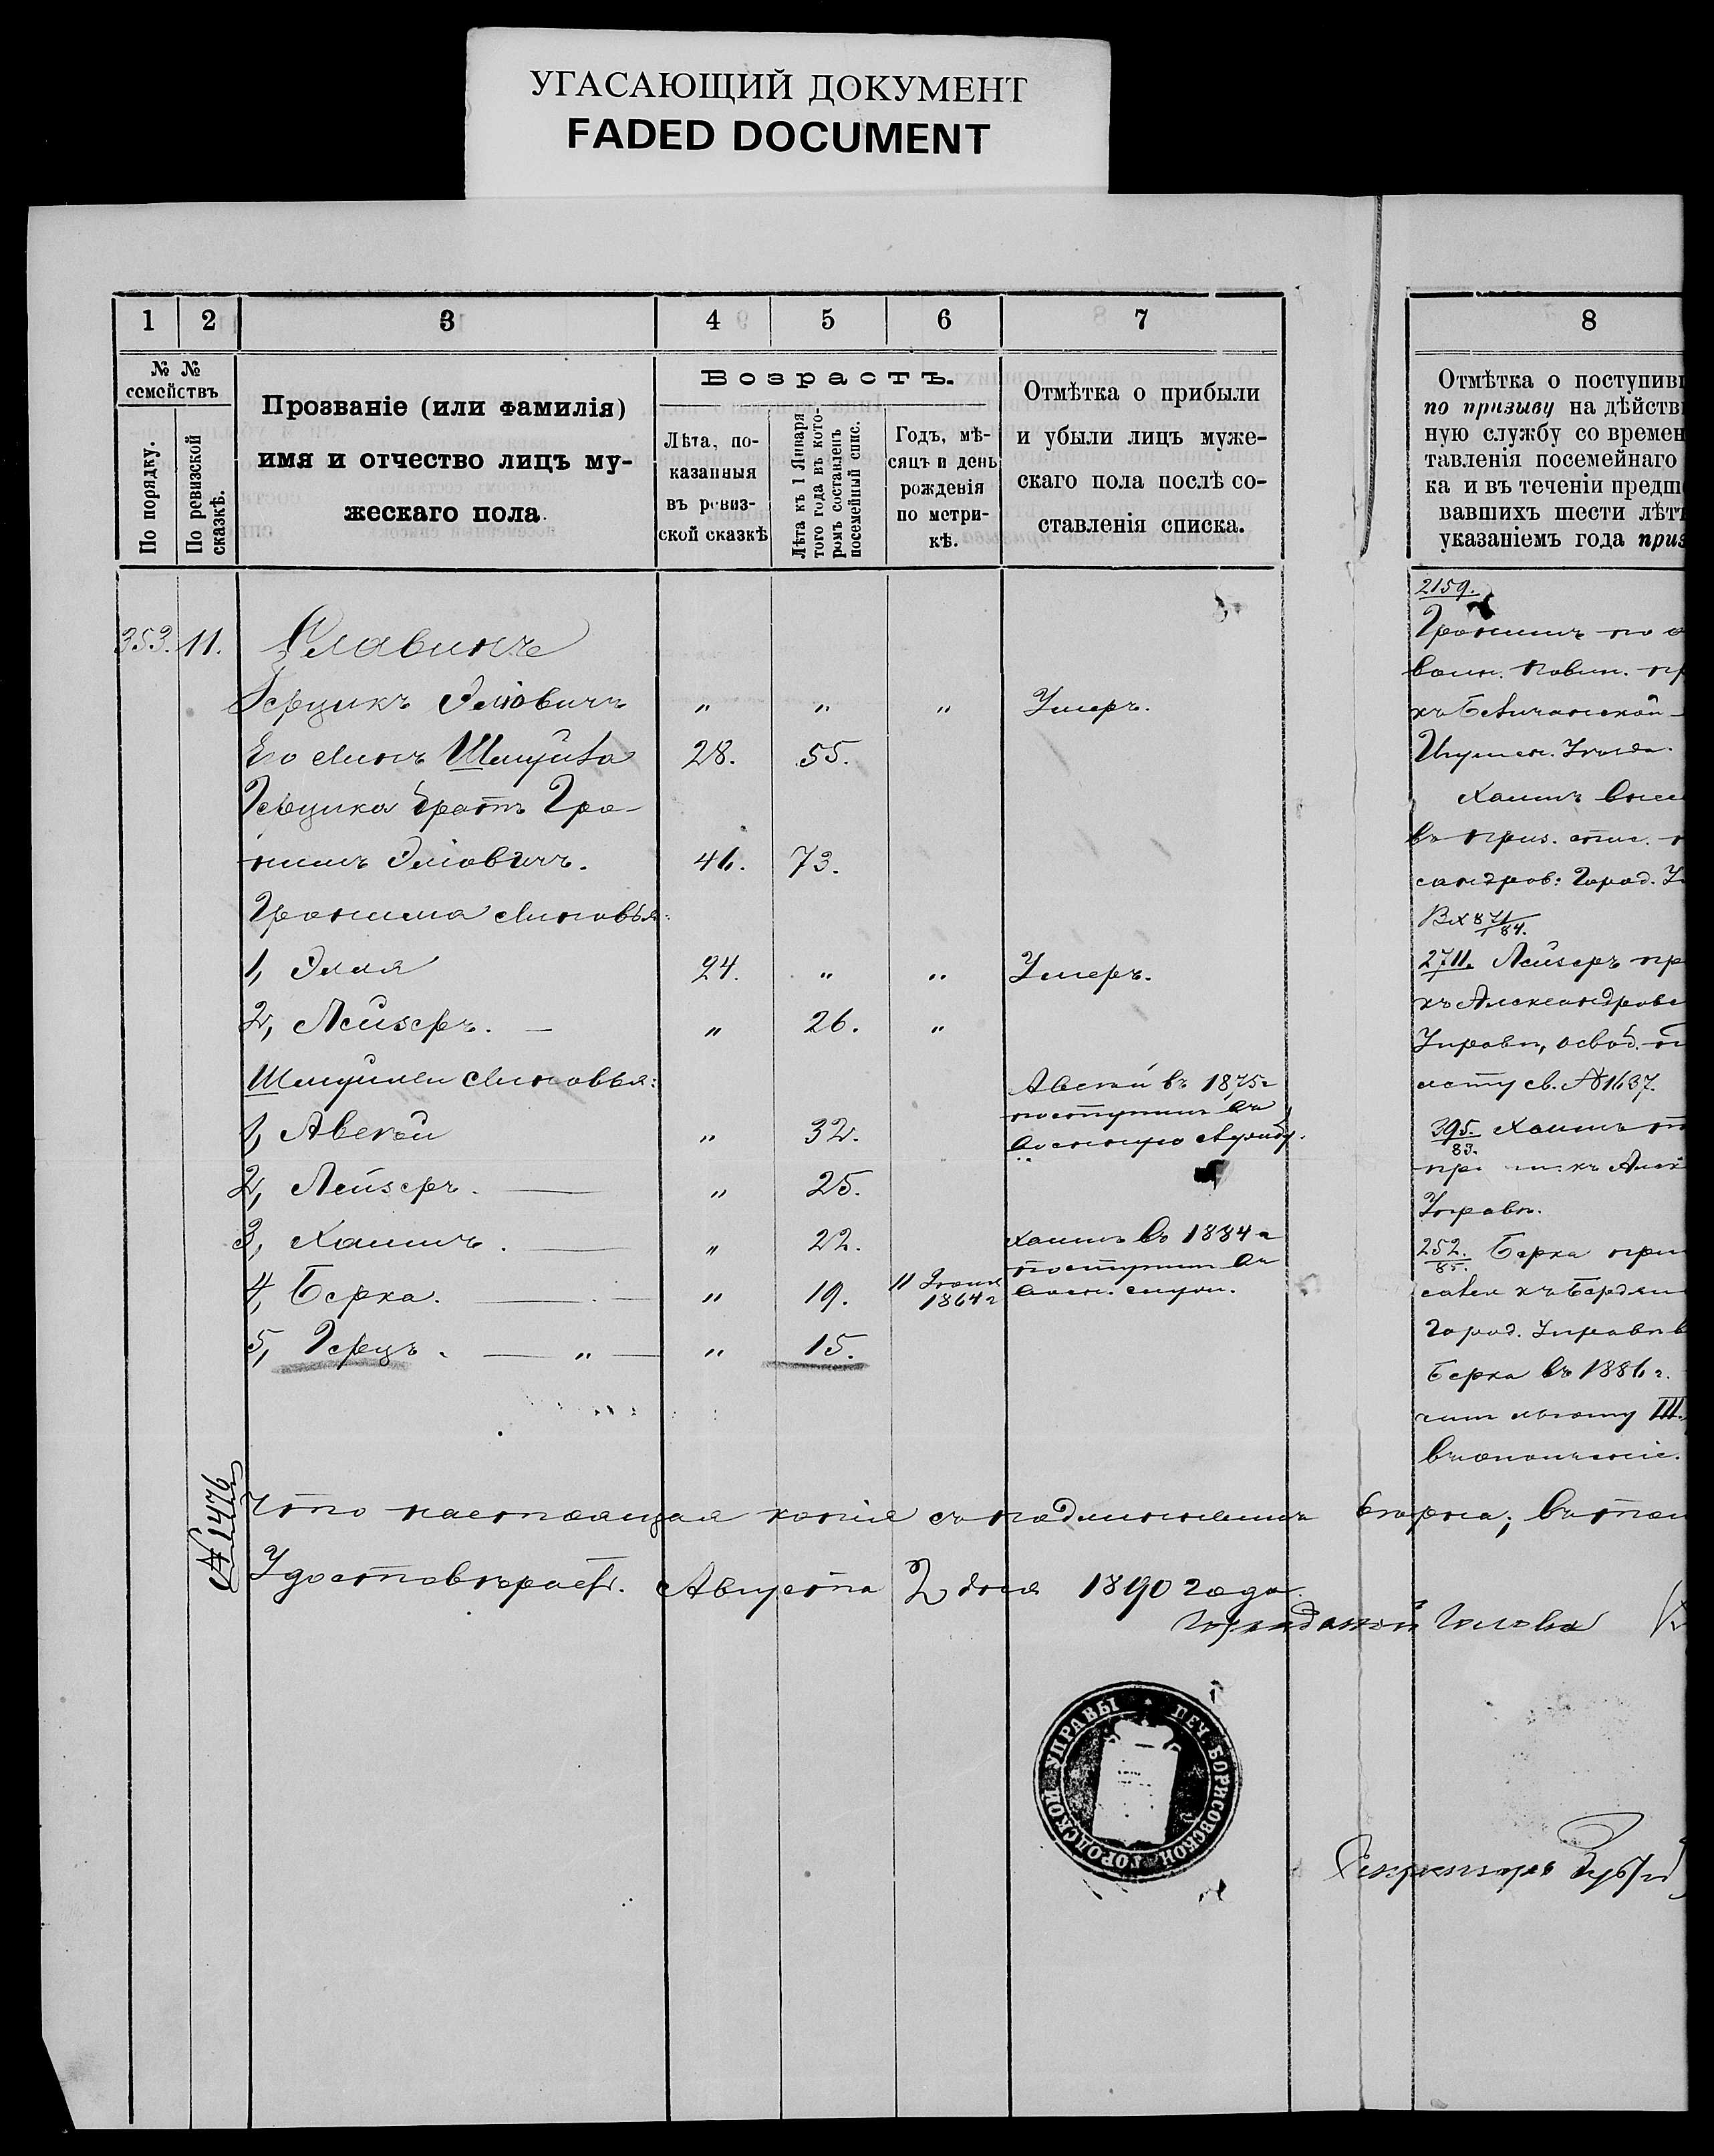 УГАСАЮЩИЙ ДОКУМЕНТ
FADED DOCUMENT
1 2 3 4 5 6 7
№ №
семействъ
По порядку.
По ревизской
сказкѣ.
Прозваніе (или фамилія)
имя и отчество лицъ му-
жескаго пола.
Возрастъ.
Лѣта, по-
казанныя
въ ревиз-
ской сказкѣ
Лѣта къ 1 Января
того года въ кото-
ромъ составленъ
посемейный спис.
Годъ, мѣ-
сяцъ и день
рожденія
по метри-
кѣ.
Отмѣтка о прибыли
и убыли лицъ муже-
скаго пола послѣ со-
ставленія списка.
353. 11. Славинъ
Герцикъ Эліовичъ " " " Умеръ.
Его сынъ Шмуйла 28. 55.
Герцика братъ Гро-
нимъ Эліовичъ. 46. 73.
Гронима сыновья:
1, Элля 24. " " Умеръ.
2, Лейзеръ. — " 26. "
Шмуйлы сыновья:
1, Авсей " 32.
Авсей въ 1875 г
поступилъ въ
военную службу.
2, Лейзеръ. — " 25.
3, Хаимъ. — " 22.
Хаимъ въ 1884 г
поступилъ въ
воен. служ.
4, Берка. — " 19. 11 Іюня
1864 г
5, Герцъ. — " — " 15.
8
Отмѣтка о поступивш
по призыву на дѣйств
ную службу со времен
тавленія посемейнаго
ка и въ теченіи предше
вавшихъ шести лѣтъ
указаніемъ года приз
2159.
Гронимъ по о
воин. повин. пр
Игумен. Уѣзда.
Хаимъ
въ приз. спис.
сандров. Город. У
Вх 871/84.
2711. Лейзеръ пр
къ Александровс
Управѣ, освоб.
св. №1637.
395./83. Хаимъ
къ Алек
Управѣ.
252./85. Берка при
къ Бердян
Город. Управѣ в
Берка въ 1886 г.
чилъ льготу III
въ ополченіе.
№1476
Что настоящая копія съ подлиннымъ вѣрна; въ том
Удостовѣряетъ. Августа 2 дня 1890 года.
Городской Голова
ПЕЧ. БОРИСОВСКОЙ ГОРОДСКОЙ УПРАВЫ
Секретарь